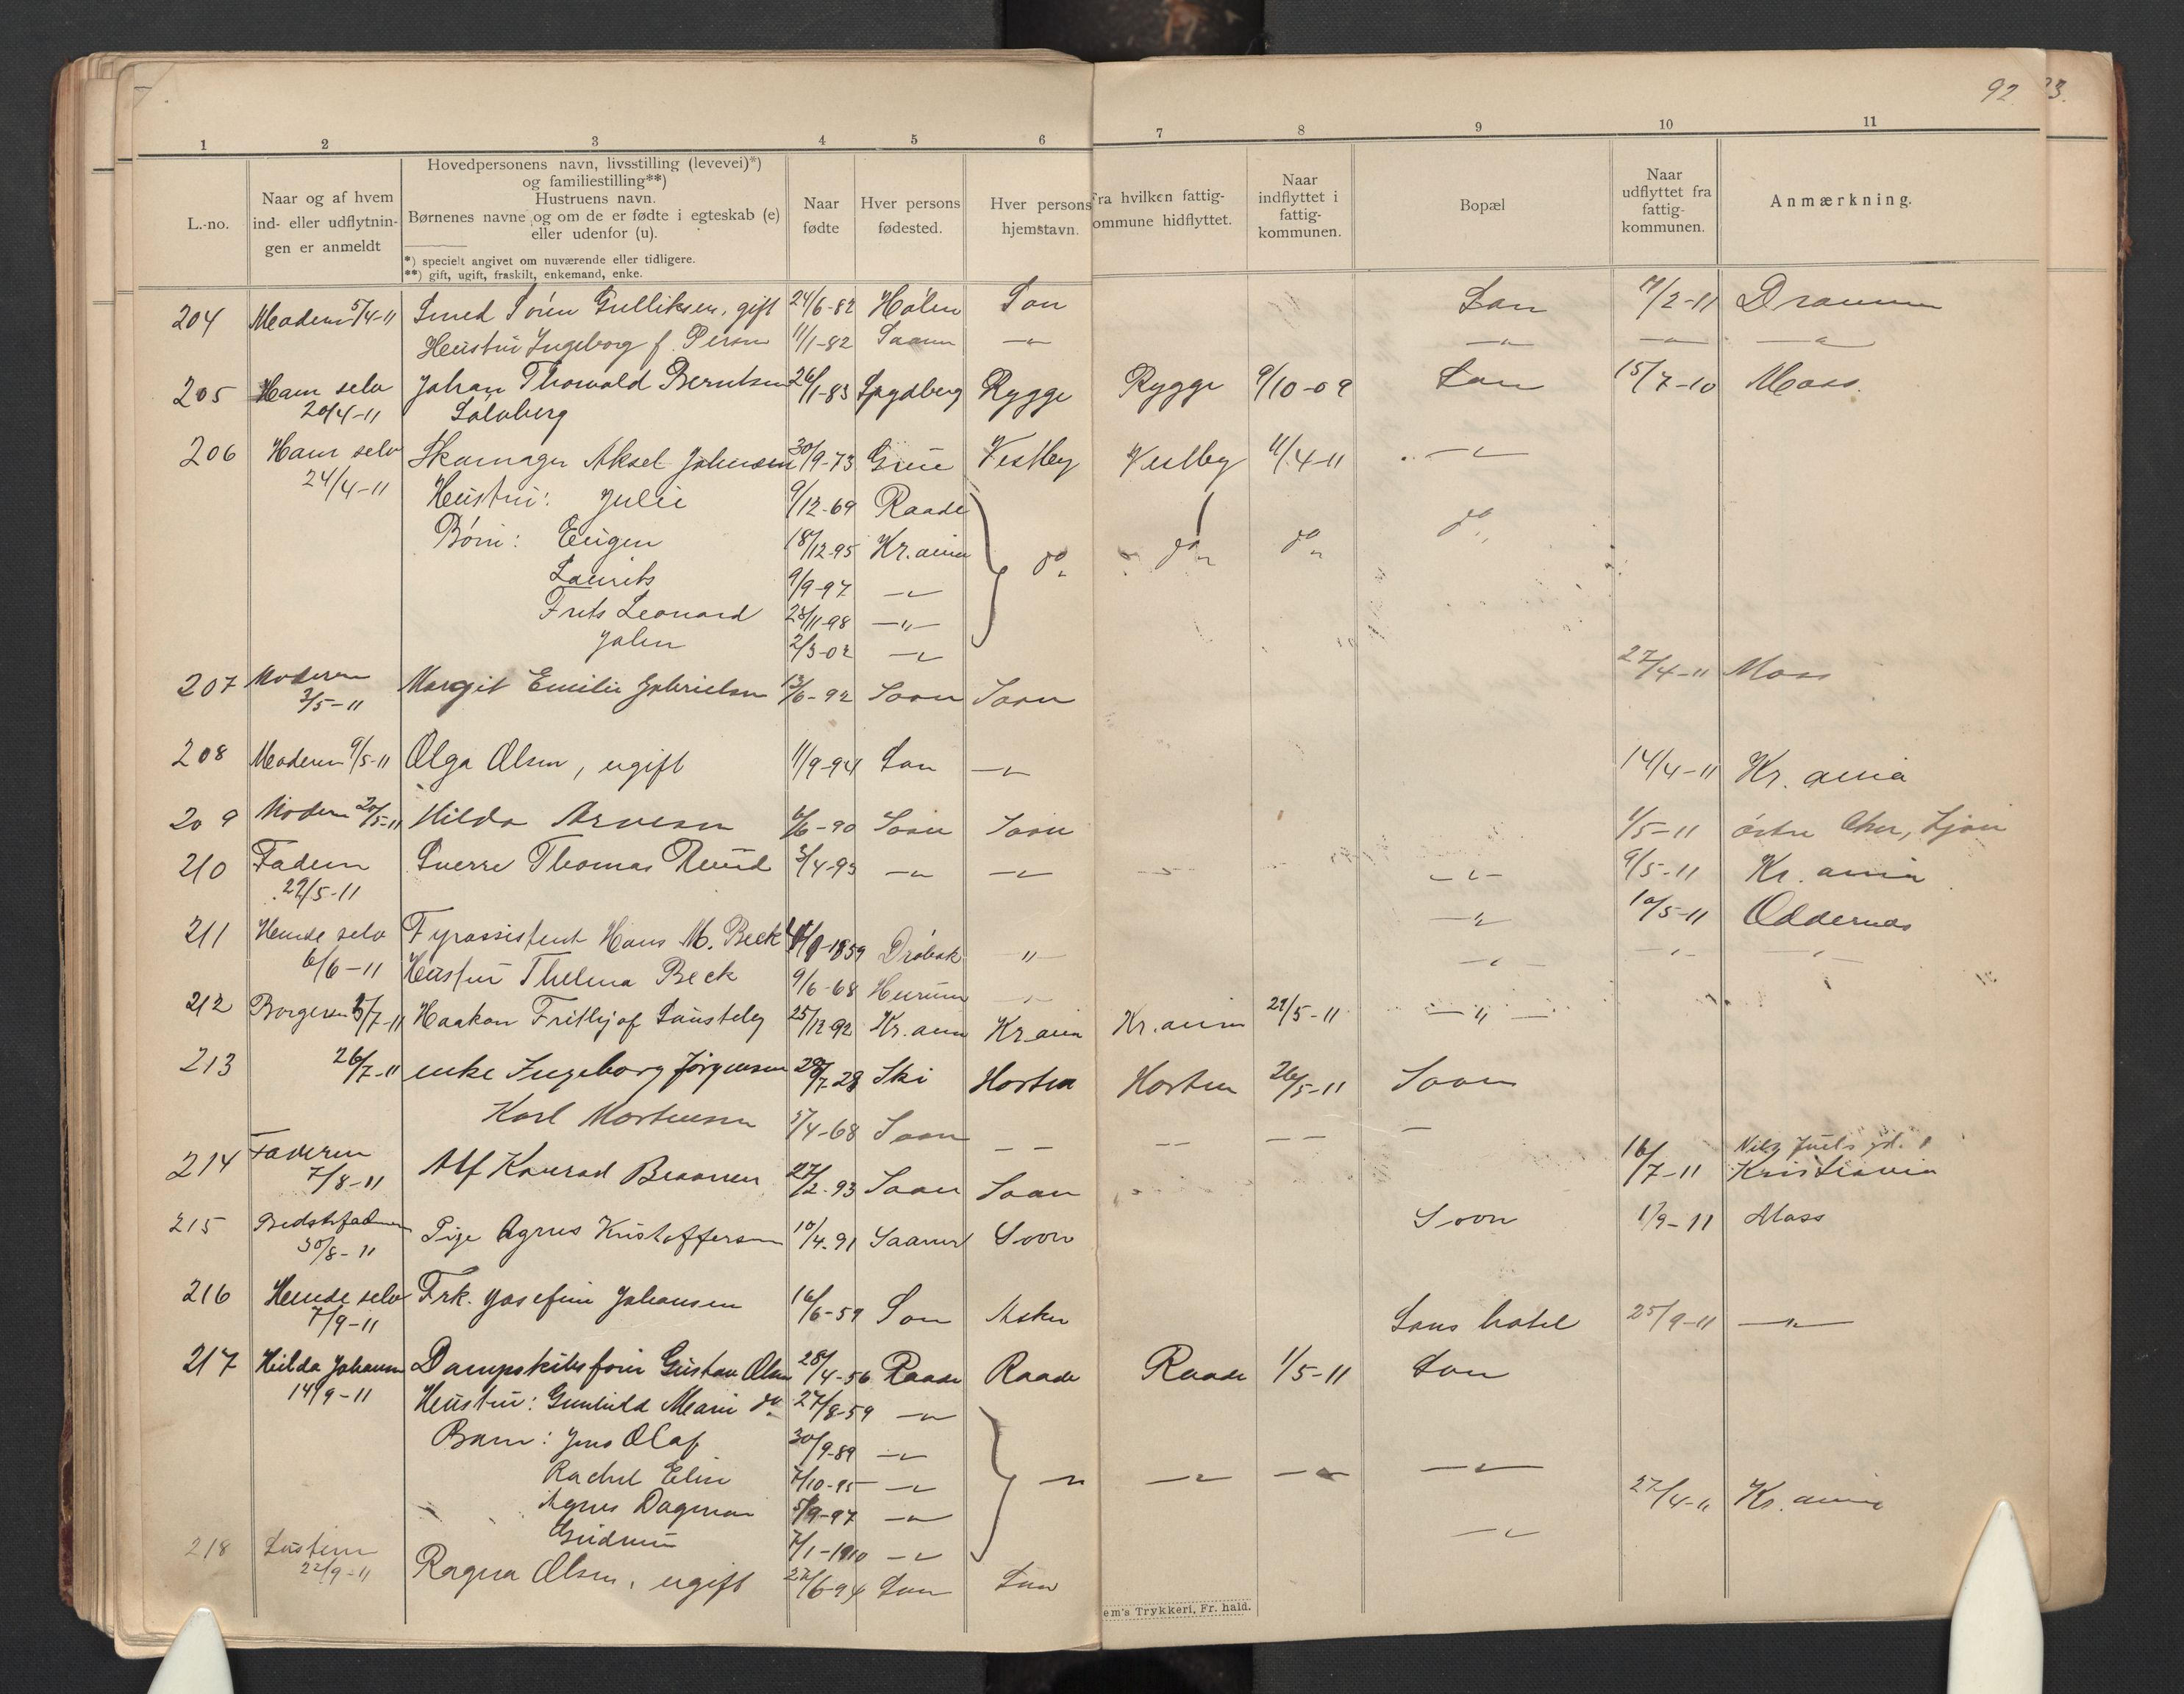 92 23.
1 2 3 4 5 6 7 8 9 10 11
L.-no.
Naar og af hvem
ind- eller udflytnin-
gen er anmeldt
Hovedpersonens navn, livsstilling (levevei)*)
og familiestilling**)
Hustruens navn.
Børnenes navne og om de er fødte i egteskab (e)
eller udenfor (u).
*) specielt angivet om nuværende eller tidligere.
**) gift, ugift, fraskilt, enkemand, enke.
Naar
fødte
Hver persons
fødested.
Hver persons
hjemstavn.
Fra hvilken fattig-
ommune hidflyttet.
Naar
indflyttet i
fattig-
kommunen.
Bopæl
Naar
udflyttet fra
fattig-
kommunen.
Anmærkning.
204 Moderen 5/4-11 Smed Sören Gulliksen, gift 24/6-82 Hølen Son Son /2-11 Drammen
Hustru Ingeborg f. Persen 11/1-82 Saaner —"— —"— —"— —"—
205 Ham selv Johan Thorvald Berntsen 26/1-83 Spydberg Rygge Rygge 9/10-09 Son 15/7-10 Moss.
20/4-11 Solvberg
206 Ham selv Skomager Aksel Johansen 30/9-73 Grue Vestby Vestby 11/4-11 —"—
24/4-11 Hustru: Julie 9/12-69 Raade
Børn: Eugen 18/12-95 Kr.ania do. do. do. do.
Laurits 9/9-97 —"—
Frits Leonard 28/11-98 —"—
John 2/3-02 —"—
207 Moderen Margit Emilie Gabrielsen 13/6-92 Soon Soon 27/4-11 Moss
2/5-11
208 Moderen 9/5-11 Olga Olsen, ugift 11/9-94 Son —"— 14/4-11 Kr. ania
209 Modern 20/5-11 Hilda Arnesen 6/6-90 Soon Soon 1/5-11 østre Aker, Ljan
210 Faderen Sverre Thomas Ruud 3/4-93 —"— —"— —"— 9/5-11 Kr. ania
22/5-11
211 Hende selv Fyrassistent Hans M. Beck 1859 Drøbak —"— —"— 10/5-11 Oddernes
6/6-11 Hustru Thelma Beck 9/6-68 Hurum —"— —"— —"— —"—
212 Borgersen 3/7-11 Haakon Frithjof Sunsteby 25/12 92 Kr. ania Kr.ania Kr. ania 29/5-11 —"—
213 26/7-11 enke Ingeborg Jørgensen 28/7 28 Ski Horten Horten 26/5-11 Soon
Karl Mortensen 5/4-68 Soon — — — — — — —
214 Faderen Alf Konrad Braaten 27/2-93 Soon Soon 16/7-11 Nils Juels gd. 1
7/8-11 Kristiania
215 Bedstefaderen Pige Agnes Kristoffersen 10/4-91 Saaner Soon Soon 1/9-11 Moss
30/8-11
216 Hende selv Frk. Josefine Johansen 16/6-59 Son Asker Sons hotel 25/9-11 —"—
7/9-11
217 Hilda Johansen Dampskibsfører Gustav Olsen 28/4-56 Raade Raade Raade 1/5-11 Son
14/9-11 Hustru: Gunhild Marie do. 27/8-59 —"—
Barn: Jens Olaf 30/9-89 —"—
Rachel Elise 7/10-95 —"— —"— —"— —"— —"—
Agnes Dagmar 5/9-97 —"—
Gudrun 7/1-1910 —"—
218 Søsteren Ragna Olsen, ugift 22/6-94 Son Son —"— 27/4-11 Kr. ania
22/9-11
em's Trykkeri, Fr. hald.